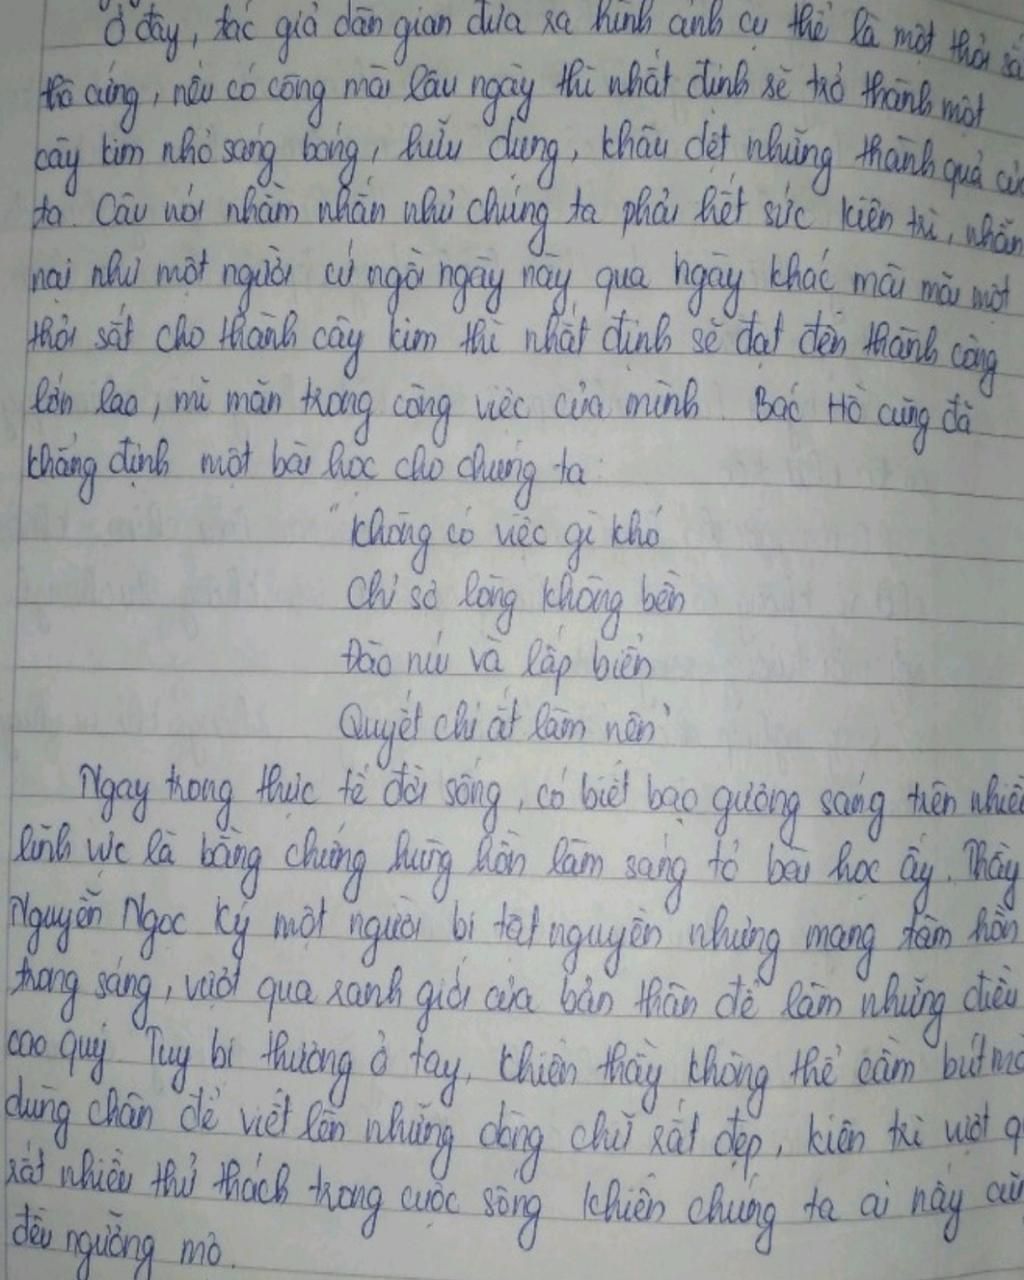 Ở đây, tác giả dân gian đưa ra hình ảnh cụ thể là một thỏi sắ
thô cứng, nếu có công mài lâu ngày thì nhất định sẽ trở thành một
cây kim nhỏ sáng bóng, hữu dụng, khâu dệt những thành quả củ
ta. Câu nói nhằm nhắn nhủ chúng ta phải hết sức kiên trì, nhẫn
nại như một người cứ ngồi ngày này qua ngày khác mài mãi một
thỏi sắt cho thành cây kim thì nhất định sẽ đạt đến thành công
lớn lao, mĩ mãn trong công việc của mình. Bác Hồ cũng đã
khẳng định một bài học cho chúng ta:
"Không có việc gì khó
Chỉ sợ lòng không bền
Đào núi và lấp biển
Quyết chí ắt làm nên"
Ngay trong thực tế đời sống, có biết bao gương sáng trên nhiề
lĩnh vực là bằng chứng hùng hồn làm sáng tỏ bài học ấy. Thầy
Nguyễn Ngọc Ký một người bị tật nguyền nhưng mang tâm hồn
trong sáng, vượt qua ranh giới của bản thân để làm những điều
cao quý. Tuy bị thương ở tay, khiến thầy không thể cầm bút mà
dùng chân để viết lên những dòng chữ rất đẹp, kiên trì vượt q
rất nhiều thử thách trong cuộc sống khiến chúng ta ai nấy cũ
đều ngưỡng mộ.